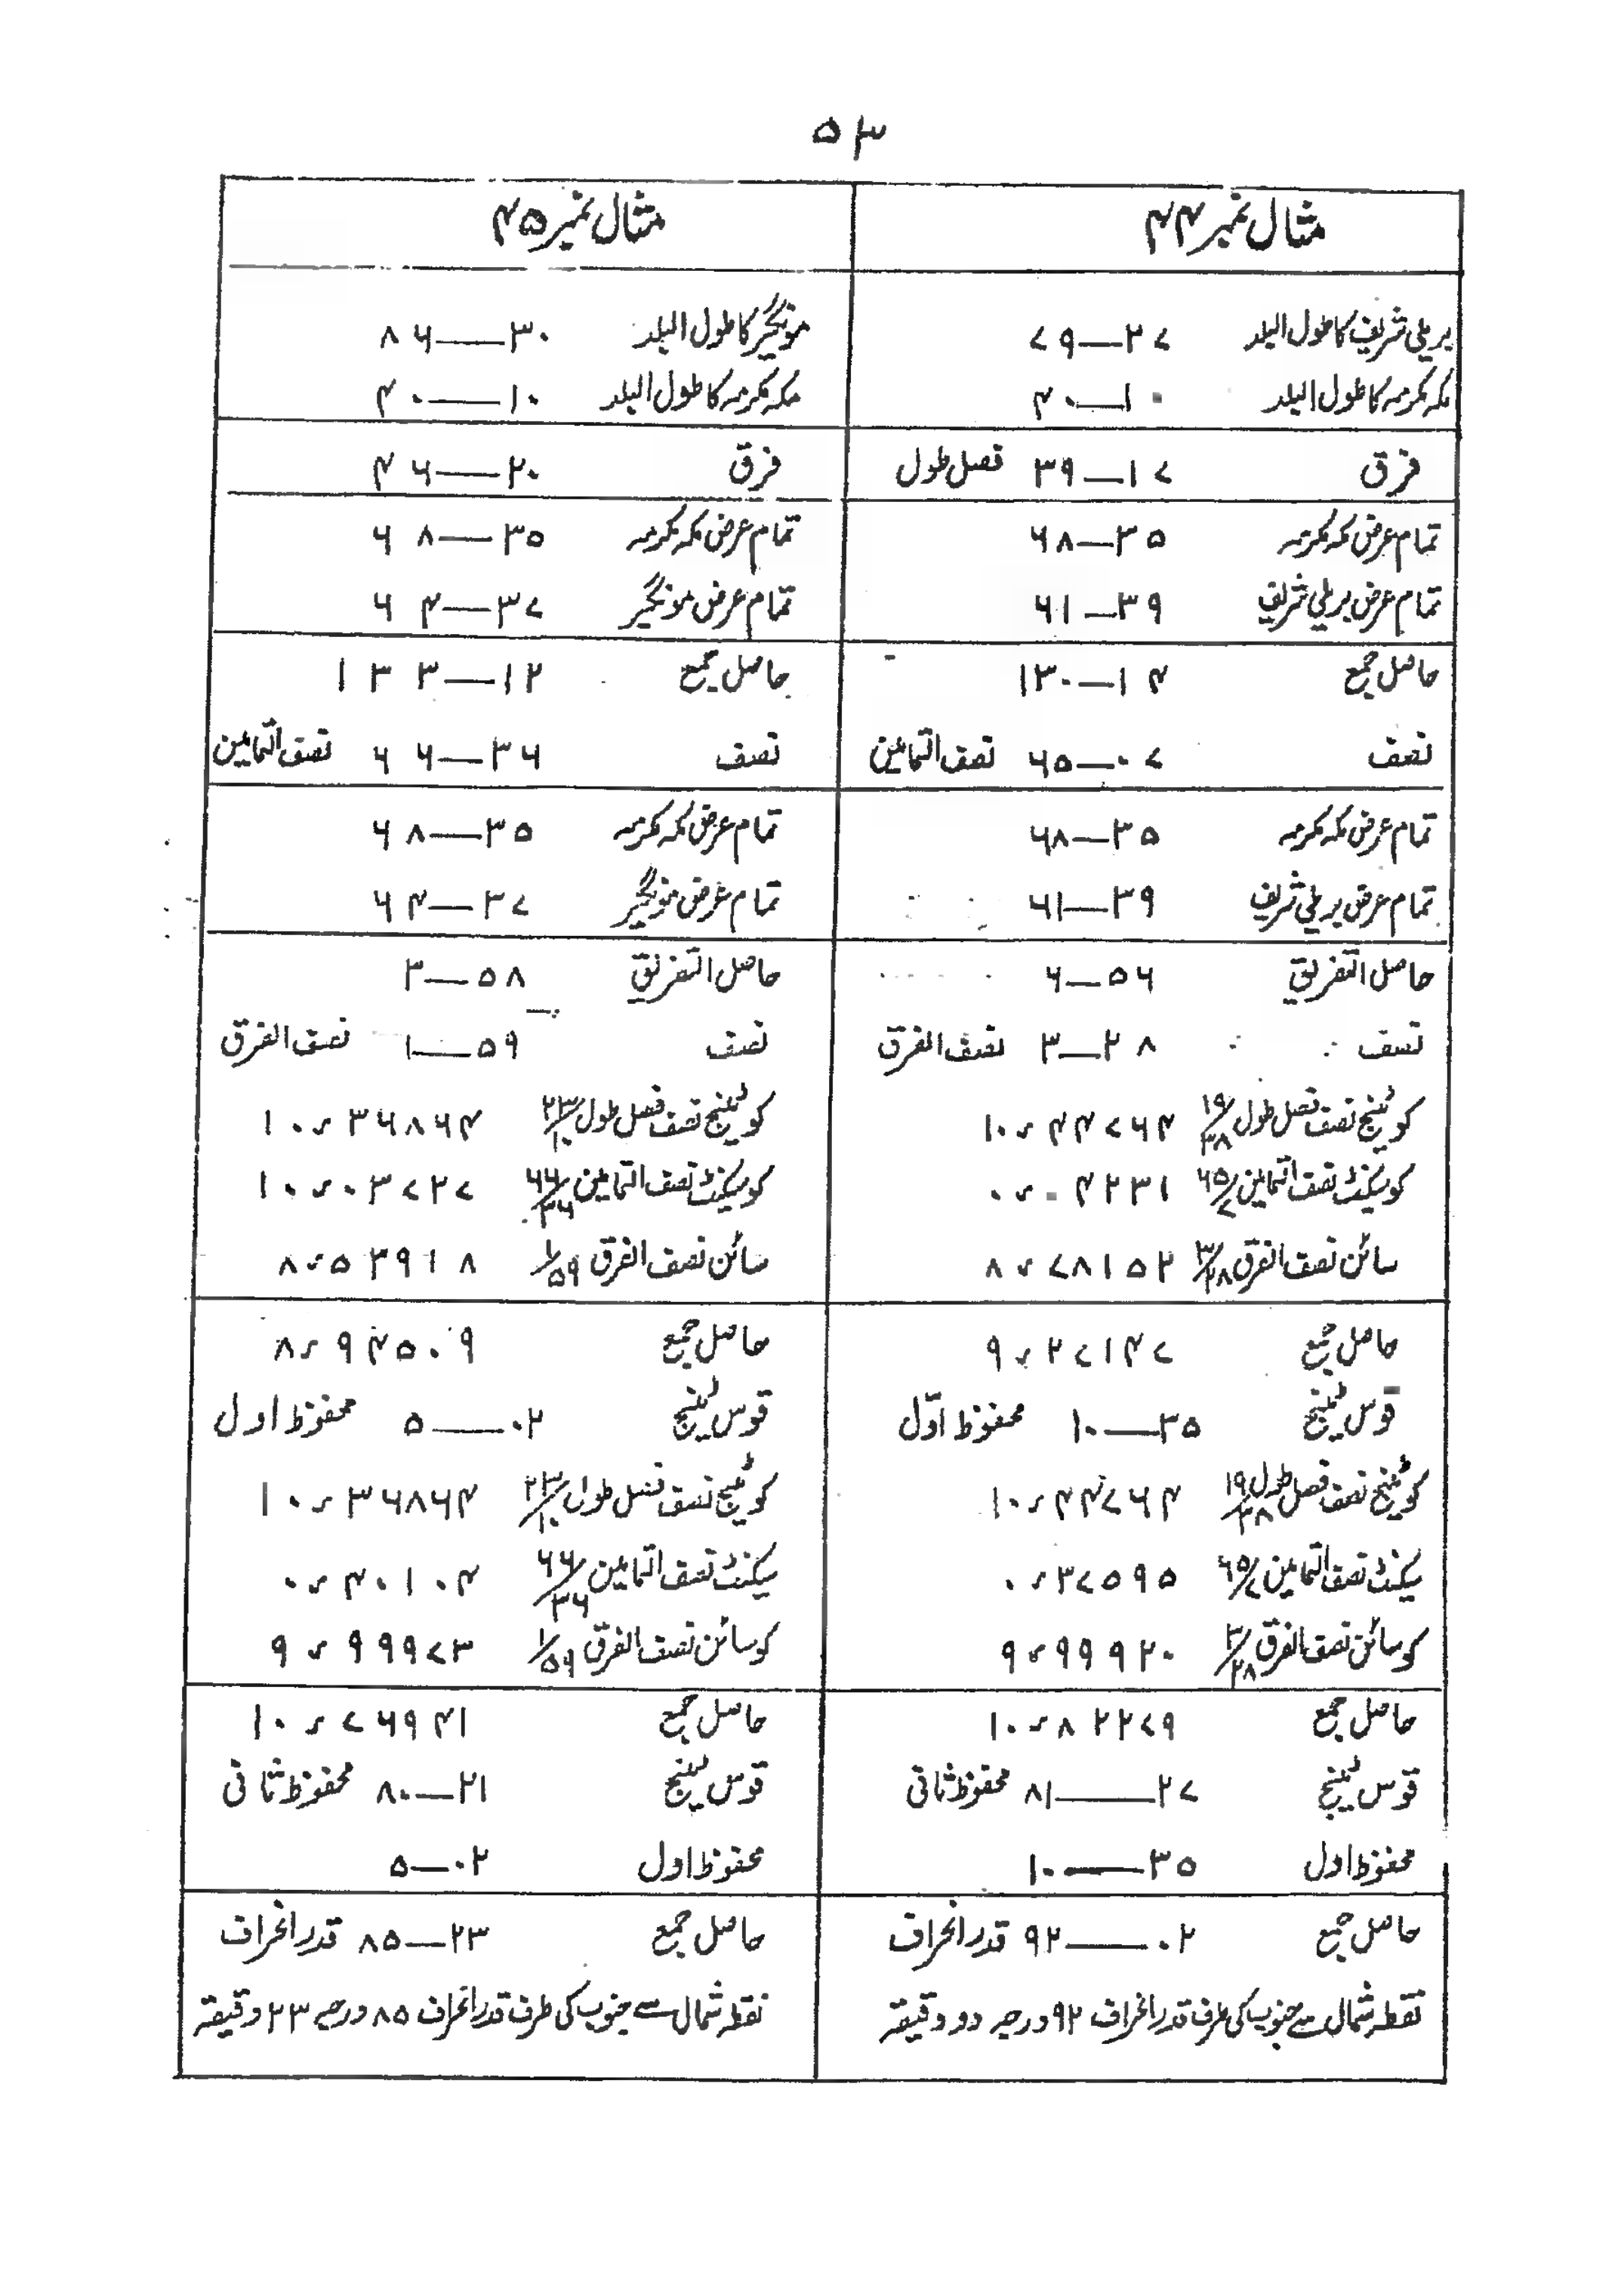 ۵۳
مثال نمبر ۴۴
بریلی شریف کا طول البلد ۷۹—۲۷
مکہ مکرمہ کا طول البلد ۴۰—۱۰
فرق ۳۹—۱۷ فصل طول
تمام عرض مکہ مکرمہ ۶۸—۳۵
تمام عرض بریلی شریف ۶۱—۳۹
حاصل جمع ۱۳۰—۱۴
نصف ۶۵—۰۷ نصف التمامین
تمام عرض مکہ مکرمہ ۶۸—۳۵
تمام عرض بریلی شریف ۶۱—۳۹
حاصل التفریق ۶—۵۶
نصف ۳—۲۸ نصف الفرق
کوٹینج نصف فصل طول ۱۹/۳۸ ۱۰٫۴۴۷۶۴
کوسیکنٹ نصف التمامین ۶۵/۷ ۰٫۰۴۲۳۱
سائن نصف الفرق ۳/۲۸ ۸٫۷۸۱۵۲
حاصل جمع ۹٫۲۷۱۴۷
قوس ٹینج ۱۰—۳۵ محفوظ اوّل
کوٹینج نصف فصل طول ۱۹/۳۸ ۱۰٫۴۴۷۶۴
سیکنٹ نصف التمامین ۶۵/۷ ۰٫۳۷۵۹۵
کوسائن نصف الفرق ۳/۲۸ ۹٫۹۹۹۲۰
حاصل جمع ۱۰٫۸۲۲۷۹
قوس ٹینج ۸۱—۲۷ محفوظ ثانی
محفوظ اول ۱۰—۳۵
حاصل جمع ۹۲—۰۲ قدر انحراف
نقطہ شمال سے جنوب کی طرف قدر انحراف ۹۲ درجہ دو دقیقہ
مثال نمبر ۴۵
مونگیر کا طول البلد ۸۶—۳۰
مکہ مکرمہ کا طول البلد ۴۰—۱۰
فرق ۴۶—۲۰
تمام عرض مکہ مکرمہ ۶۸—۳۵
تمام عرض مونگیر ۶۴—۳۷
حاصل جمع ۱۳۳—۱۲
نصف ۶۶—۳۶ نصف التمامین
تمام عرض مکہ مکرمہ ۶۸—۳۵
تمام عرض مونگیر ۶۴—۳۷
حاصل التفریق ۳—۵۸
نصف ۱—۵۹ نصف الفرق
کوٹینج نصف فصل طول ۲۳/۱۰ ۱۰٫۳۶۸۶۴
کوسیکنٹ نصف التمامین ۶۶/۳۶ ۱۰٫۰۳۷۲۷
سائن نصف الفرق ۱/۵۹ ۸٫۵۳۹۱۸
حاصل جمع ۸٫۹۴۵۰۹
قوس ٹینج ۵—۰۲ محفوظ اول
کوٹینج نصف فصل طول ۲۳/۱۰ ۱۰٫۳۶۸۶۴
سیکنٹ نصف التمامین ۶۶/۳۶ ۰٫۴۰۱۰۴
کوسائن نصف الفرق ۱/۵۹ ۹٫۹۹۹۷۳
حاصل جمع ۱۰٫۷۶۹۴۱
قوس ٹینج ۸۰—۲۱ محفوظ ثانی
محفوظ اول ۵—۰۲
حاصل جمع ۸۵—۲۳ قدر انحراف
نقطہ شمال سے جنوب کی طرف قدر انحراف ۸۵ درجہ ۲۳ دقیقہ